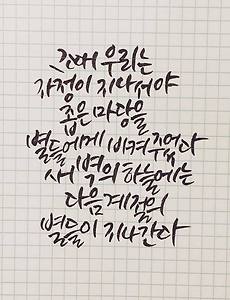 그때 우리는
자정이 지나서야
좁은 마당을
별들에게 비켜주었다
새벽의 하늘에는
다음 계절의
별들이 지나간다